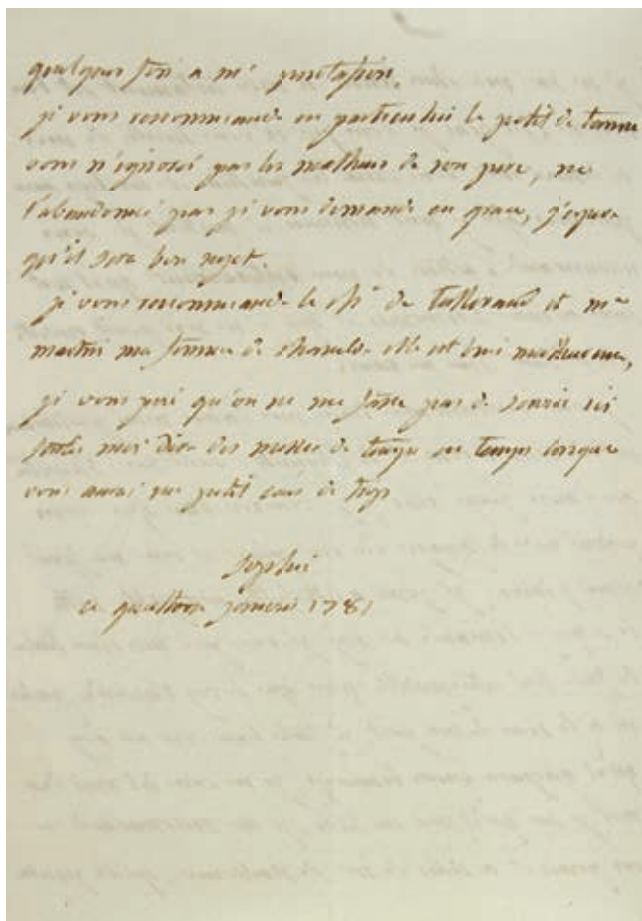 je vous recommande en particulier le petit de
vous n'ignoré pas les malheurs de son pere, ne
l'abandonné pas je vous demande en grace, j'espere
qu'il sera bon sujet.
je vous recommande le ch^r de et m^de
martin ma femme de chambre elle est bien malheureuse,
je vous prie qu'on ne me fasse pas de service ici
faites moi dire des messes de temps en temps lorsque
vous aurai un petit ecus de trop
sophie
ce quattorze janvier 1781